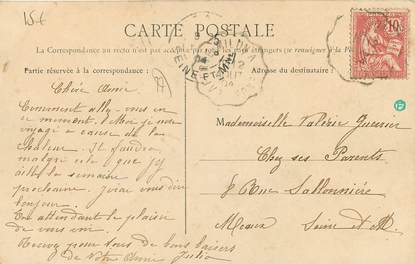 15t
CARTE POSTALE
La Correspondance au recto n'est pas acceptée par tous les pays étrangers (se renseigner à la Poste)
Partie réservée à la correspondance :
Adresse du destinataire :
10
SEINE-ET-MARNE
Chère Amie
Comment allez-vous en
ce moment. Moi je me
voyage à cause de la
chaleur. Il faudra
malgré cela que j'y
aille la semaine
prochaine. J'irai vous dire
bonjour.
En attendant le plaisir
de vous voir
Recevez pour tous de bons baisers
de Votre Amie Julia
Mademoiselle Valérie Guerrin
Chez ses Parents
8 Rue Sallonnière
Meaux Seine et M.